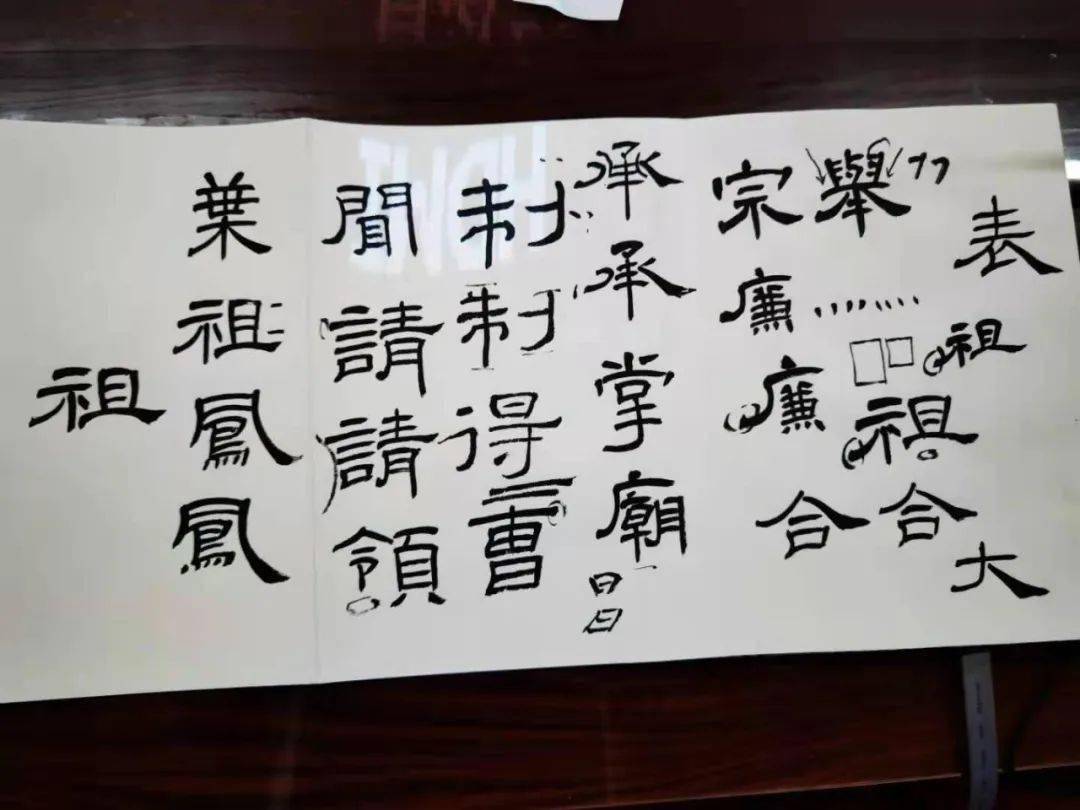 表祖大
舉祖合
宗廉廉合
承承掌廟日日
制制得曹
聞請請領
葉祖鳳鳳
祖